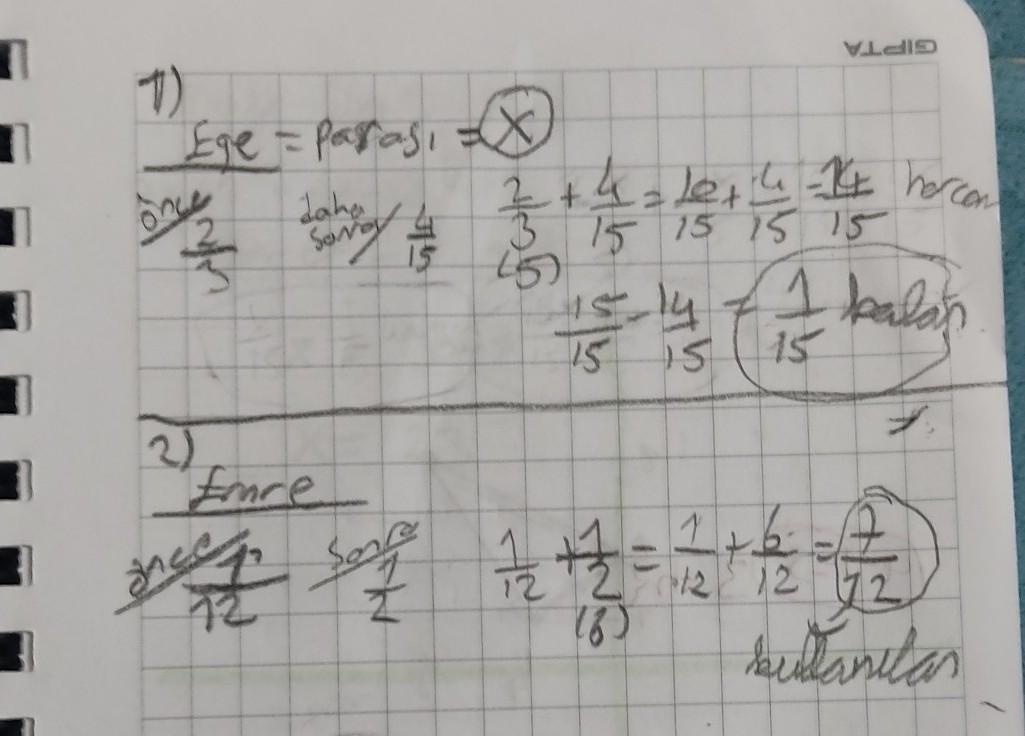 GIPTA
1)
Ege = Parası = X
önce 2/3 daha sonra 4/15 2/3 + 4/15 = 10/15 + 4/15 = 14/15 harcan
(5)
15/15 - 14/15 = 1/15 kalan
2)
Emre
önce 1/12 sonra 1/2 1/12 + 1/2 = 1/12 + 6/12 = 7/12
(6)
kullanılan